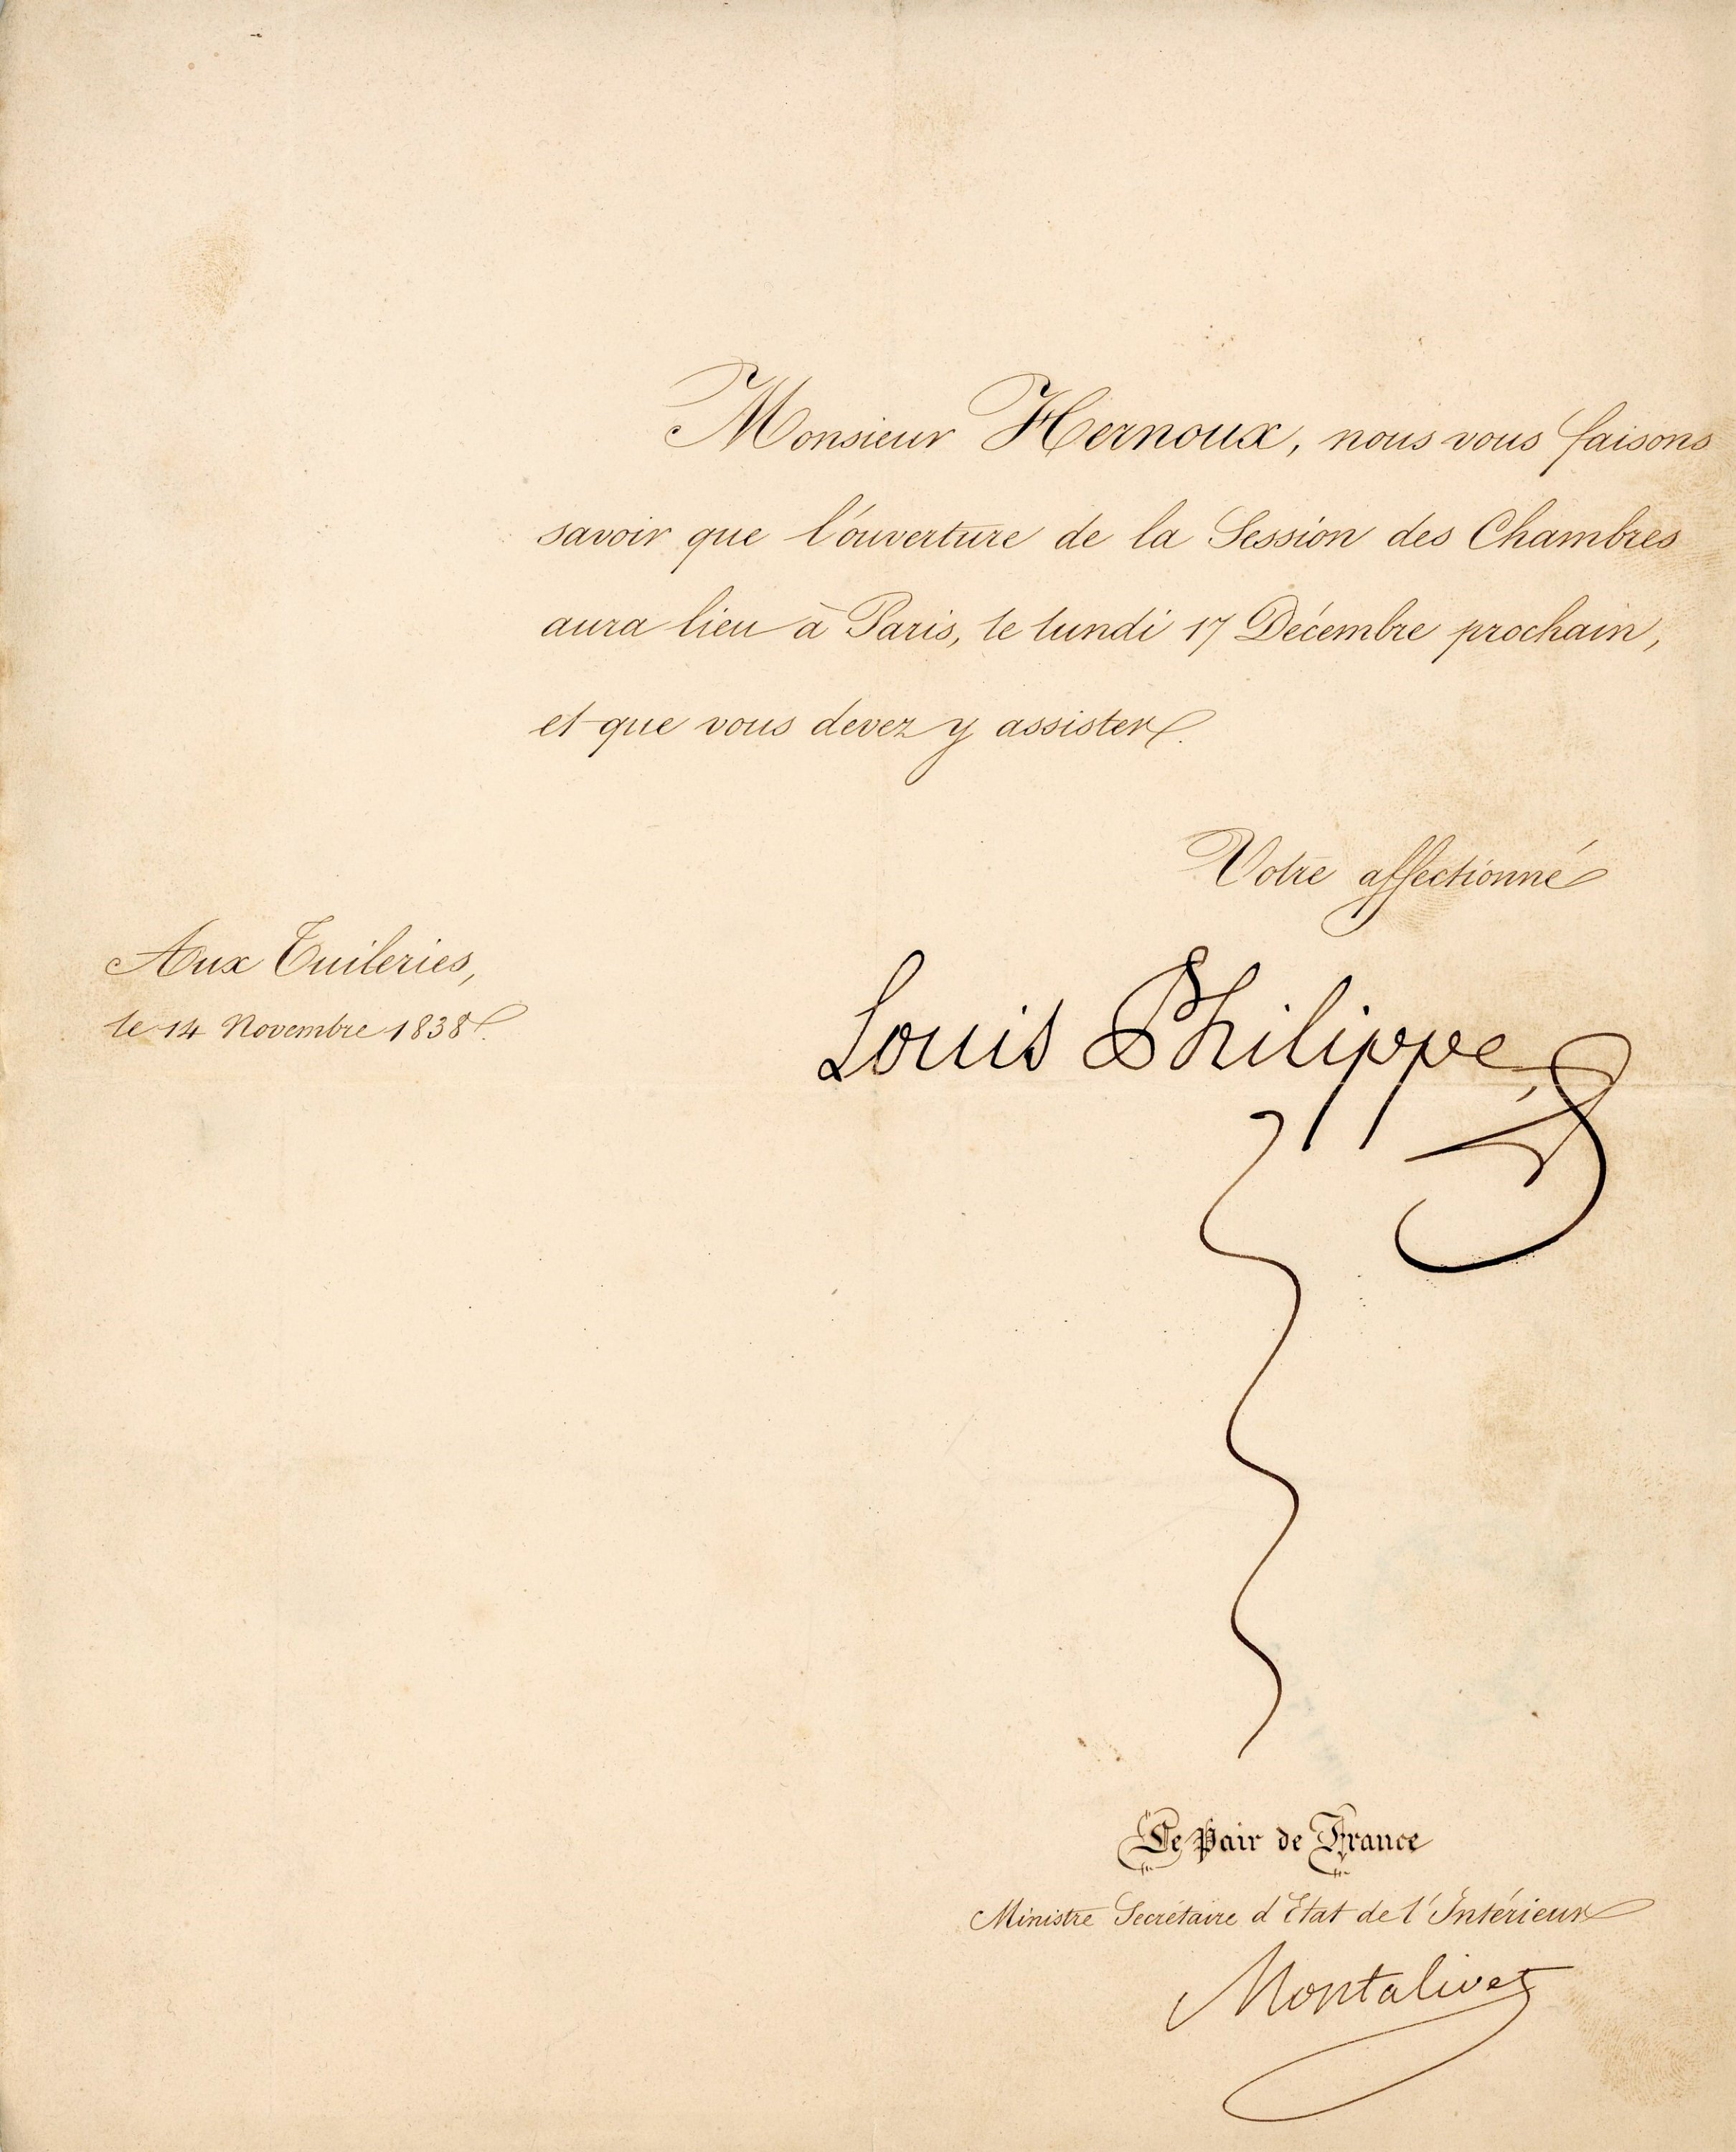 Monsieur Hernoux, nous vous faisons
savoir que l'ouverture de la Session des Chambres
aura lieu à Paris, le lundi 17 Décembre prochain,
et que vous devez y assister.
Votre affectionné
Aux Tuileries,
le 14 Novembre 1838.
Louis Philippe
Le Pair de France
Ministre Secrétaire d'Etat de l'Intérieur
Montalivet